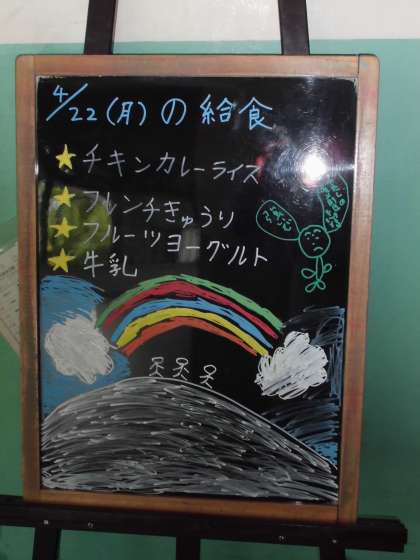 4/22(月)の給食
★チキンカレーライス
★フレンチきゅうり
★フルーツヨーグルト
★牛乳